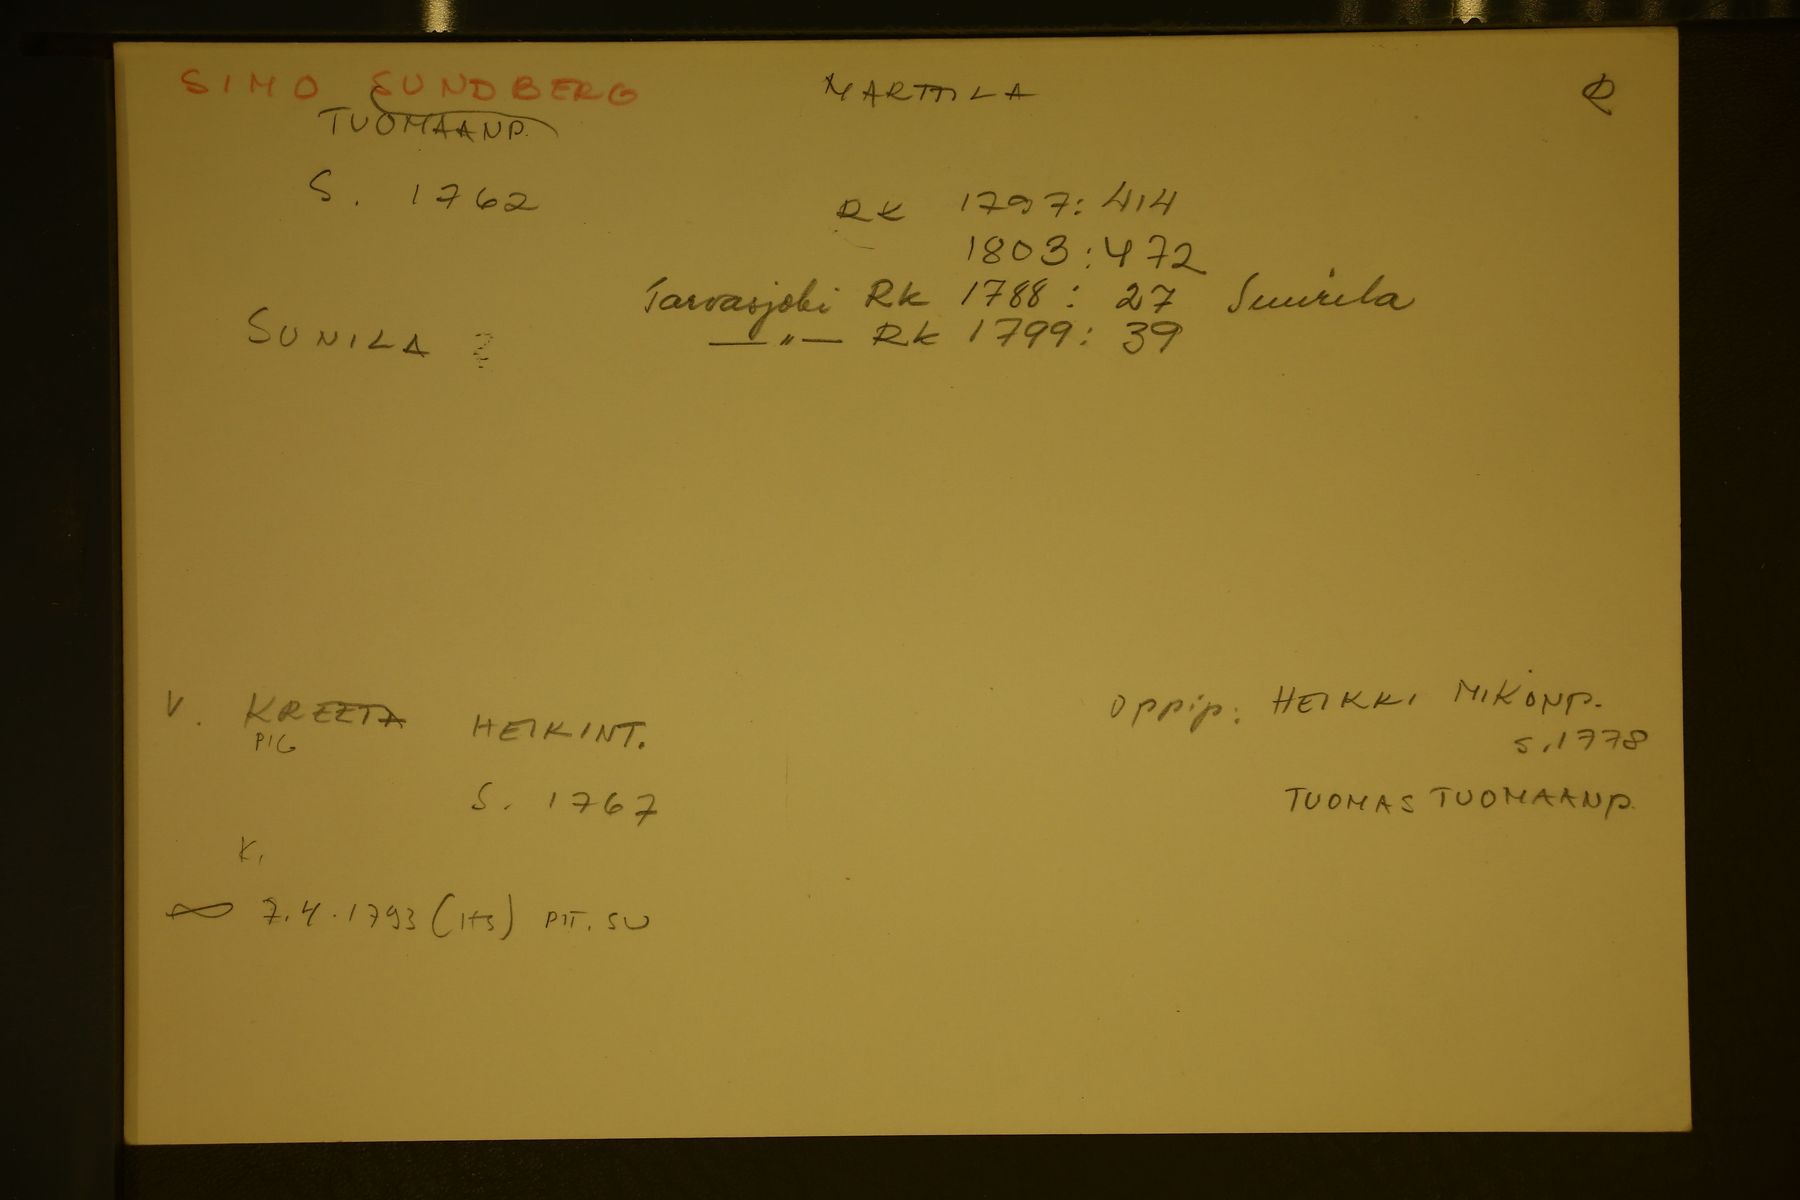 SIMO SUNDBERG MARTTILA R
TUOMAANP.
S. 1762
RK 1797:414
1803:472
Tarvasjoki RK 1788: 27 Suurila
—〃— RK 1799: 39
SUNILA ?
V. KREETA HEIKINT.
PIG
S. 1767
K.
∞ 7.4.1793 (Its) PIT. SU
Oppip: HEIKKI MIKONP.
s.1778
TUOMAS TUOMAANP.